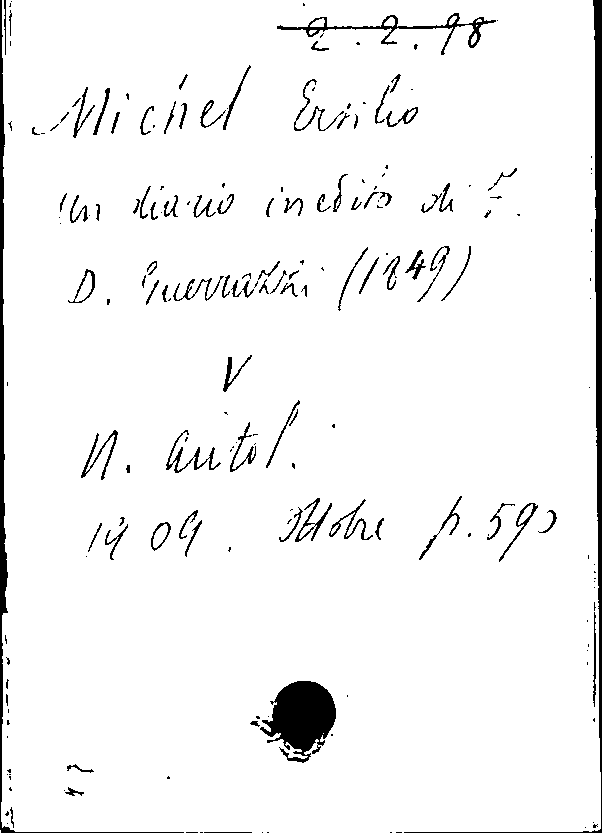 2.2.98
Michel Ersilio
Un diario inedito di F.
D. Guerrazzi (1849)
V
N. Antol.
1909. Ottobre p. 590